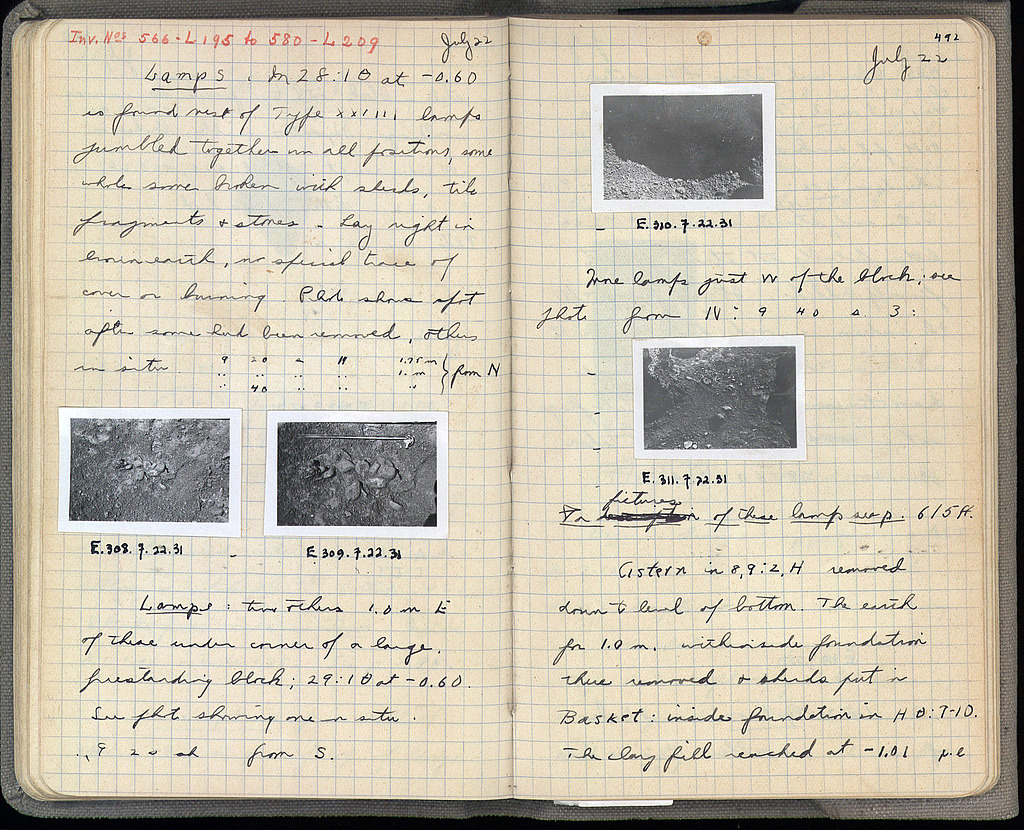 Inv. Nos 566 - L 195 to 580 - L 209
July 22
Lamps. In 28:1Θ at -0.60
is found nest of Type XXVIII lamps
jumbled together in all positions, some
whole some broken with sherds, tile
fragments + stones - Lay right in
brown earth, no special trace of
cover or burning. Photo shows spot
after some had been removed, others
in situ 9 20 11 1.75 m } from N
" " " " 1. m
" 40 " " "
E.308.7.22.31
E.309.7.22.31
Lamps: two others 1.0 m E
of these under corner of a large.
freestanding block; 29:1Θ at -0.60.
See phot showing one in situ.
9 20 sh from S.
492
July 22
E.310.7.22.31
More lamps just W of the block; see
photo from N: 9 40 3:
E.311.7.22.31
pictures
For of these lamps see p. 615 ff.
Cistern in 8,9:2,H removed
down to level of bottom. The earth
for 1.0 m. within inside foundation
there removed + sherds put in
Basket: inside foundation in HΘ:7-10.
The clay fill reached at -1.01